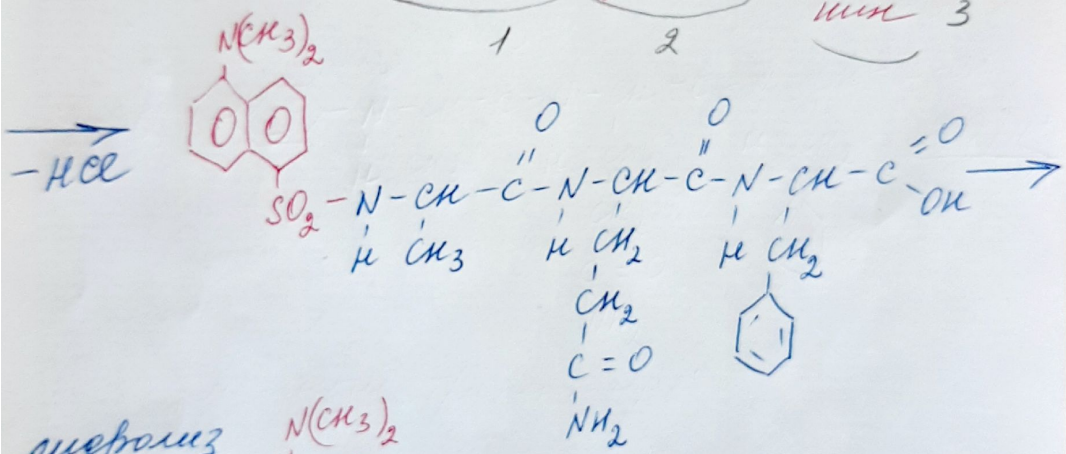 3
1 2
N(CH3)2
-HCl
O O
SO2-N-CH-C-N-CH-C-N-CH-C=O
OH
H CH3 H CH2 H CH2
CH2
C=O
NH2
N(CH3)2